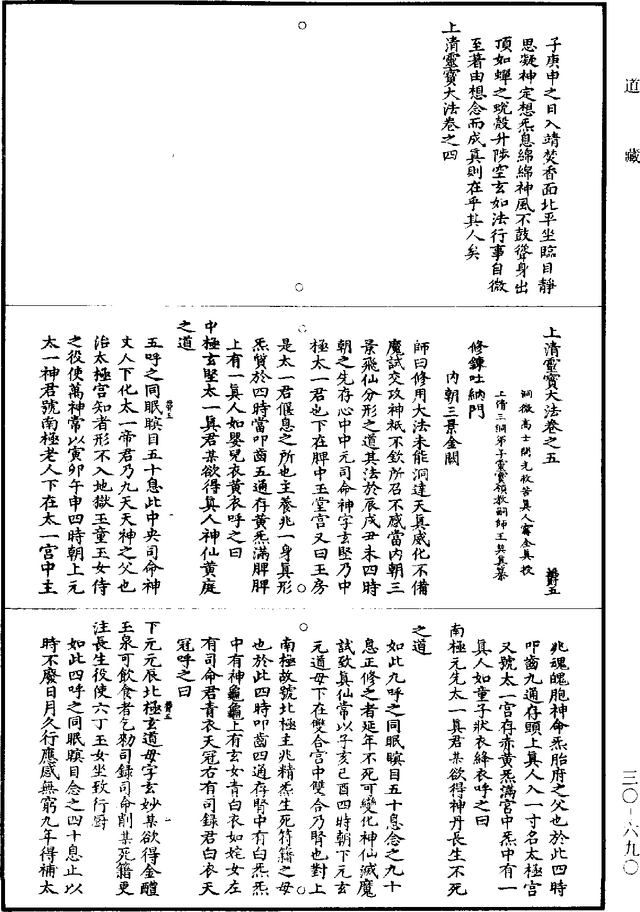 道藏
子庚申之日入靖焚香面北平坐臨目靜
思凝神定想炁息綿綿神風不鼓聳身出
頂如蟬之蛻殼升陟空玄如法行事自微
至著由想念而成真則在乎其人矣
上清靈寶大法卷之四
上清靈寶大法卷之五
洞微高士開光救苦真人甯全真授
上清三洞弟子靈寶領教嗣師王契真纂
修鍊吐納門
內朝三景金闕
師曰修用大法未能洞達天真威化不備
魔試交攻神祇不欽所召不感當內朝三
景飛仙分形之道其法於辰戌丑未四時
朝之先存心中中元司命神字玄堅乃中
極太一君也下在脾中玉堂宮又曰玉房
是太一君偃息之所也主養兆一身真形
炁質於四時當叩齒五通存黃炁滿脾脾
上有一真人如嬰兒衣黃衣呼之曰
中極玄堅太一真君某欲得真人神仙黃庭
之道
五呼之同眠瞑目五十息此中央司命神
丈人下化太一帝君乃九天天神之父也
治太極宮知者形不入地獄玉童玉女侍
之役使萬神常以寅卯午申四時朝上元
太一神君號南極老人下在太一宮中主
兆魂魄胞神命炁胎府之父也於此四時
叩齒九通存頭上真人入一寸名太極宮
又號太一宮存赤黃炁滿宮中炁中有一
真人如童子狀衣絳衣呼之曰
南極元先太一真君某欲得神丹長生不死
之道
如此九呼之同眠瞑目五十息念之九十
息正修之者延年不死可變化神仙滅魔
試致真仙常以子亥己酉四時朝下元玄
元道母下在雙合宮中雙合乃腎也對上
南極故號北極主兆精炁生死符籍之母
也於此四時叩齒四通存腎中有白炁炁
中有神龜龜上有玄女青白衣如姹女左
有司命君青衣天冠右有司錄君白衣天
冠呼之曰
下元元辰北極玄道母字玄妙某欲得金醴
玉泉可飲食者乞勑司錄司命削某死籍更
注長生役使六丁玉女坐致行廚
如此四呼之同眠瞑目念之四十息止以
時不廢日月久行應感無窮九年得補太
三〇-六九〇